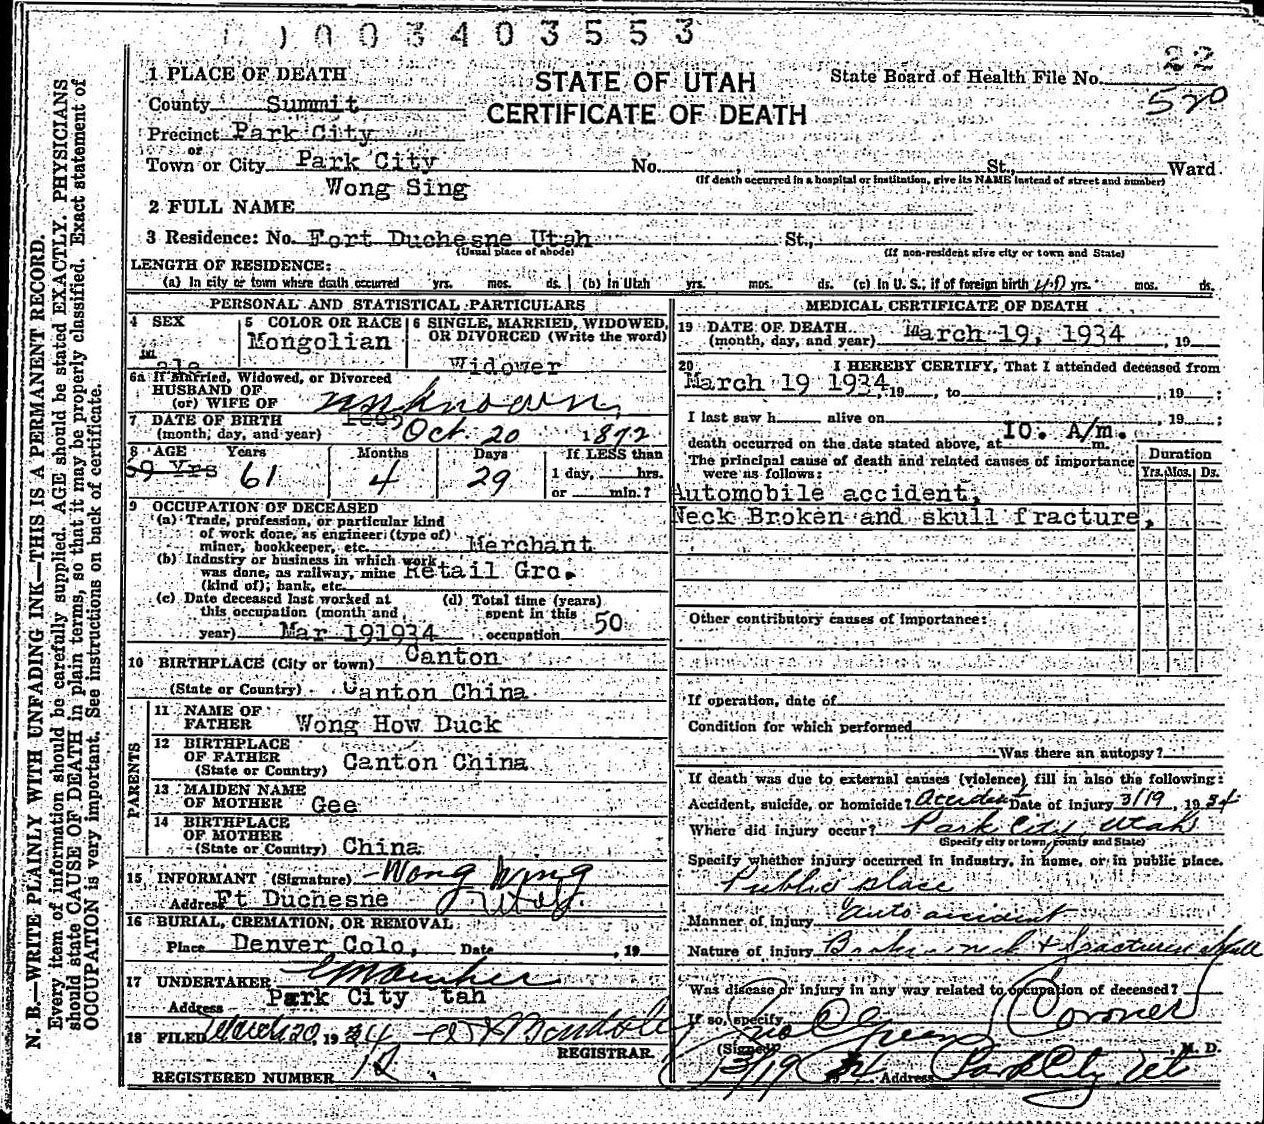 0 0 3 4 0 3 5 5 3
22
STATE OF UTAH
CERTIFICATE OF DEATH
State Board of Health File No.
520
1 PLACE OF DEATH
County Summit
Precinct Park City
or
Town or City Park City No. St., Ward
(If death occurred in a hospital or institution, give its NAME instead of street and number)
Wong Sing
2 FULL NAME
3 Residence: No. Fort Duchesne Utah St.,
(Usual place of abode) (If non-resident give city or town and State)
LENGTH OF RESIDENCE:
(a) In city or town where death occurred yrs. mos. ds. (b) In Utah yrs. mos. ds. (c) In U. S., if of foreign birth yrs. mos. ds.
PERSONAL AND STATISTICAL PARTICULARS
4 SEX
male
5 COLOR OR RACE
Mongolian
6 SINGLE, MARRIED, WIDOWED,
OR DIVORCED (Write the word)
Widower
6a If Married, Widowed, or Divorced
HUSBAND OF
(or) WIFE OF unknown
7 DATE OF BIRTH
(month, day, and year) Oct. 20 1872
8 AGE Years Months Days If LESS than
69 Yrs 61 4 29 1 day, hrs.
or min.?
9 OCCUPATION OF DECEASED
(a) Trade, profession, or particular kind
of work done, as engineer (type of)
miner, bookkeeper, etc. Merchant
(b) Industry or business in which work
was done, as railway, mine Retail Gro.
(kind of); bank, etc.
(c) Date deceased last worked at
this occupation (month and
year) Mar 191934
(d) Total time (years)
spent in this
occupation 50
10 BIRTHPLACE (City or town) Canton
(State or Country) Canton China
PARENTS
11 NAME OF
FATHER Wong How Duck
12 BIRTHPLACE
OF FATHER
(State or Country) Canton China
13 MAIDEN NAME
OF MOTHER Gee
14 BIRTHPLACE
OF MOTHER
(State or Country) China
15 INFORMANT (Signature) Wong Wing
Address Ft Duchesne Utah.
16 BURIAL, CREMATION, OR REMOVAL
Place Denver Colo, Date , 19
17 UNDERTAKER
Address Park City tah
18 FILED March 20, 1934
REGISTRAR.
REGISTERED NUMBER
MEDICAL CERTIFICATE OF DEATH
19 DATE OF DEATH
(month, day, and year) March 19, 1934 , 19
20 I HEREBY CERTIFY, That I attended deceased from
March 19 1934, 19 , to , 19 ;
I last saw h alive on , 19 ;
death occurred on the date stated above, at 10. A/m. m.
The principal cause of death and related causes of importance
were as follows:
Duration
Yrs. Mos. Ds.
Automobile accident,
Neck Broken and skull fracture,
Other contributory causes of importance:
If operation, date of
Condition for which performed
Was there an autopsy?
If death was due to external causes (violence) fill in also the following:
Accident, suicide, or homicide? Accident Date of injury 3/19, 1934
Where did injury occur? Park City, Utah
(Specify city or town, county and State)
Specify whether injury occurred in industry, in home, or in public place.
Public place
Manner of injury Auto accident
Nature of injury Broken neck & fractured skull
Was disease or injury in any way related to occupation of deceased?
If so, specify
(Signed) Green Coroner M. D.
3/19 34 Address Park City Ut
N. B.—WRITE PLAINLY WITH UNFADING INK—THIS IS A PERMANENT RECORD.
Every item of information should be carefully supplied. AGE should be stated EXACTLY. PHYSICIANS
should state CAUSE OF DEATH in plain terms, so that it may be properly classified. Exact statement of
OCCUPATION is very important. See instructions on back of certificate.